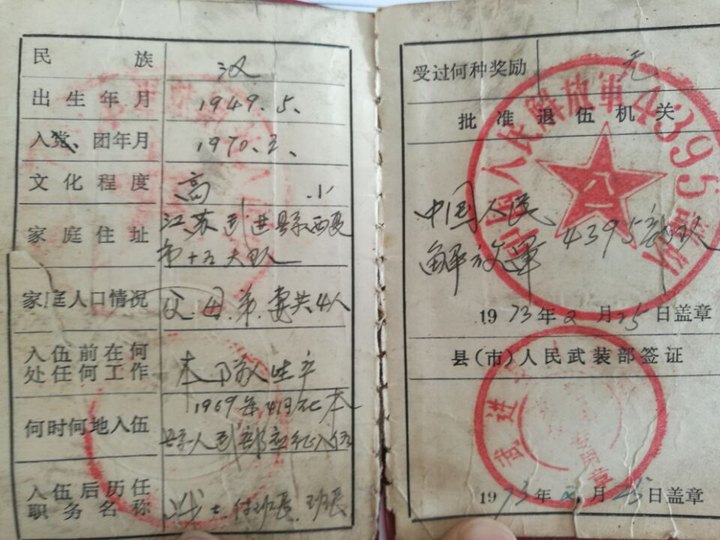 民族 汉
出生年月 1949.5.
入党、团年月 1970.2、
文化程度 高小
家庭住址 江苏武进县西夏
第十五大队
家庭人口情况 父.母.弟.妻共4人
入伍前在何
处任何工作 本队生产
何时何地入伍 1969年4月在本
县人武部应征入伍
入伍后历任
职务名称 战士.付班长.班长
受过何种奖励 无
批准退伍机关
中国人民解放军4395部队
中国人民
解放军4395部队
1973年2月25日盖章
县(市)人民武装部签证
武进
1973年2月25日盖章